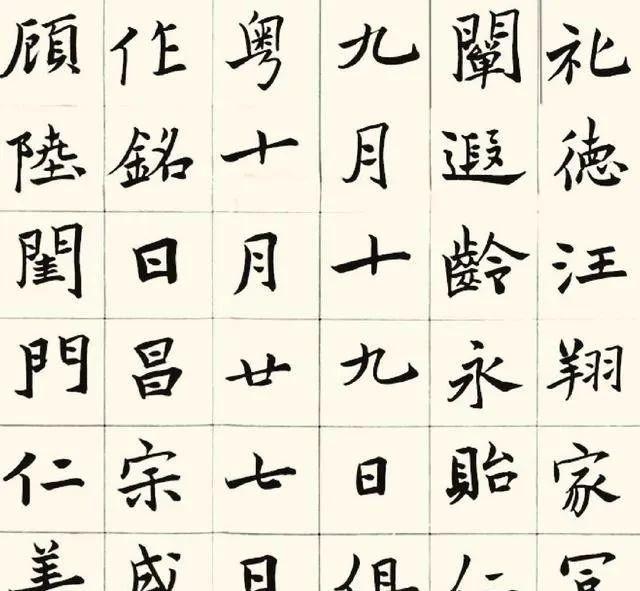 礼德汪翔家
闡遐齡永貽
九月十九日
粤十月廿七日
作銘曰昌宗
顧陸閨門仁